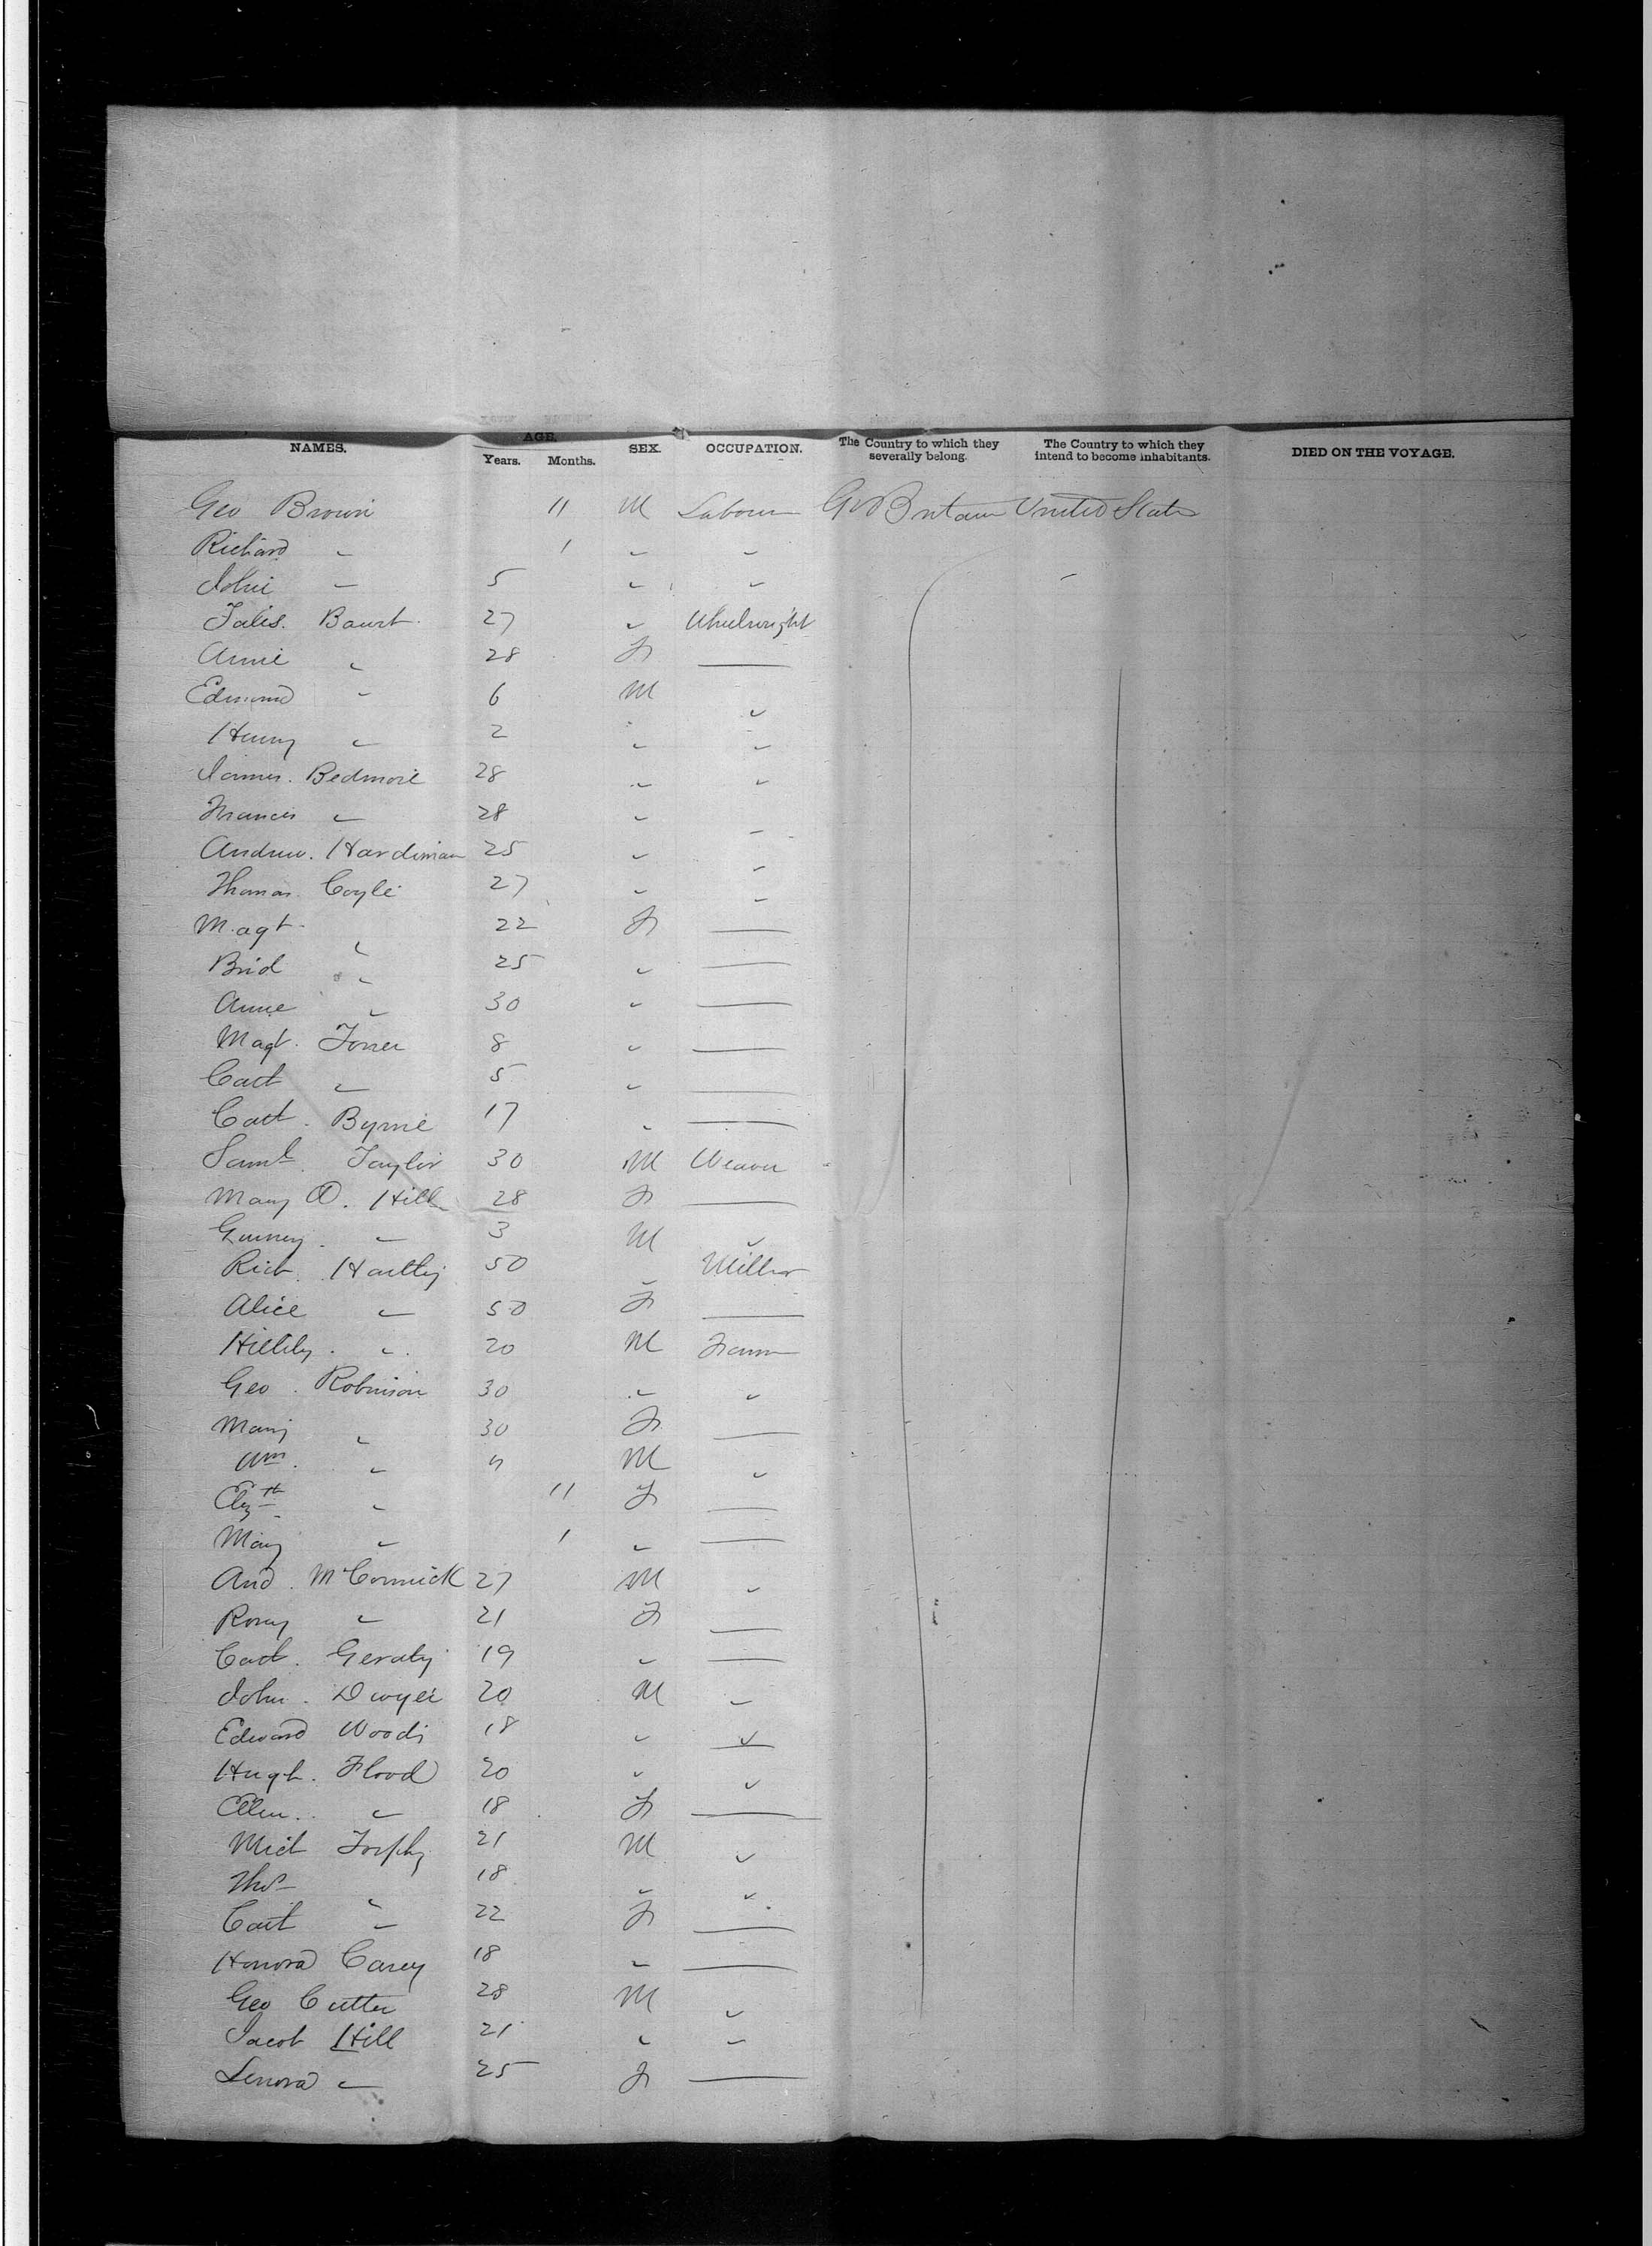 NAMES. AGE. SEX. OCCUPATION. The Country to which they severally belong. The Country to which they intend to become inhabitants. DIED ON THE VOYAGE.
Years. Months.
Geo Brown 11 M Labourer Gt Britain United States
Richard " 1 " "
John " 5 " "
27 " Wheelwright
Annie " 28 F —
Edmond " 6 M "
Henry " 2 " "
James. Bedmore 28 " "
Francis " 28 " "
Andrew. Hardiman 25 " "
Thomas. Coyle 27 " "
Magt " 22 F —
Brid " 25 " —
Anne " 30 " —
Magt. 8 " —
Cath " 5 " —
Cath. Byrne 17 " —
Saml. Taylor 30 M Weaver
Mary A. Hill 28 F —
" 3 M "
Rich. Hartley 50 " Miller
Alice " 50 F —
" 20 M
Geo. Robinson 30 " "
Mary " 30 F —
Wm. " 4 M "
Elizth " 11 F —
Mary " 1 " —
And. McCormick 27 M "
Rosey " 21 F —
Cath. Geraty 19 " —
John. Dwyer 20 M "
Edward Woods 18 " "
Hugh. Flood 20 " "
Ellen. " 18 F —
Mich 21 M "
Thos " 18 " "
Cath " 22 F —
Honora Carey 18 " —
Geo Cutter 28 M "
Jacob Hill 21 " "
Lenora " 25 F —